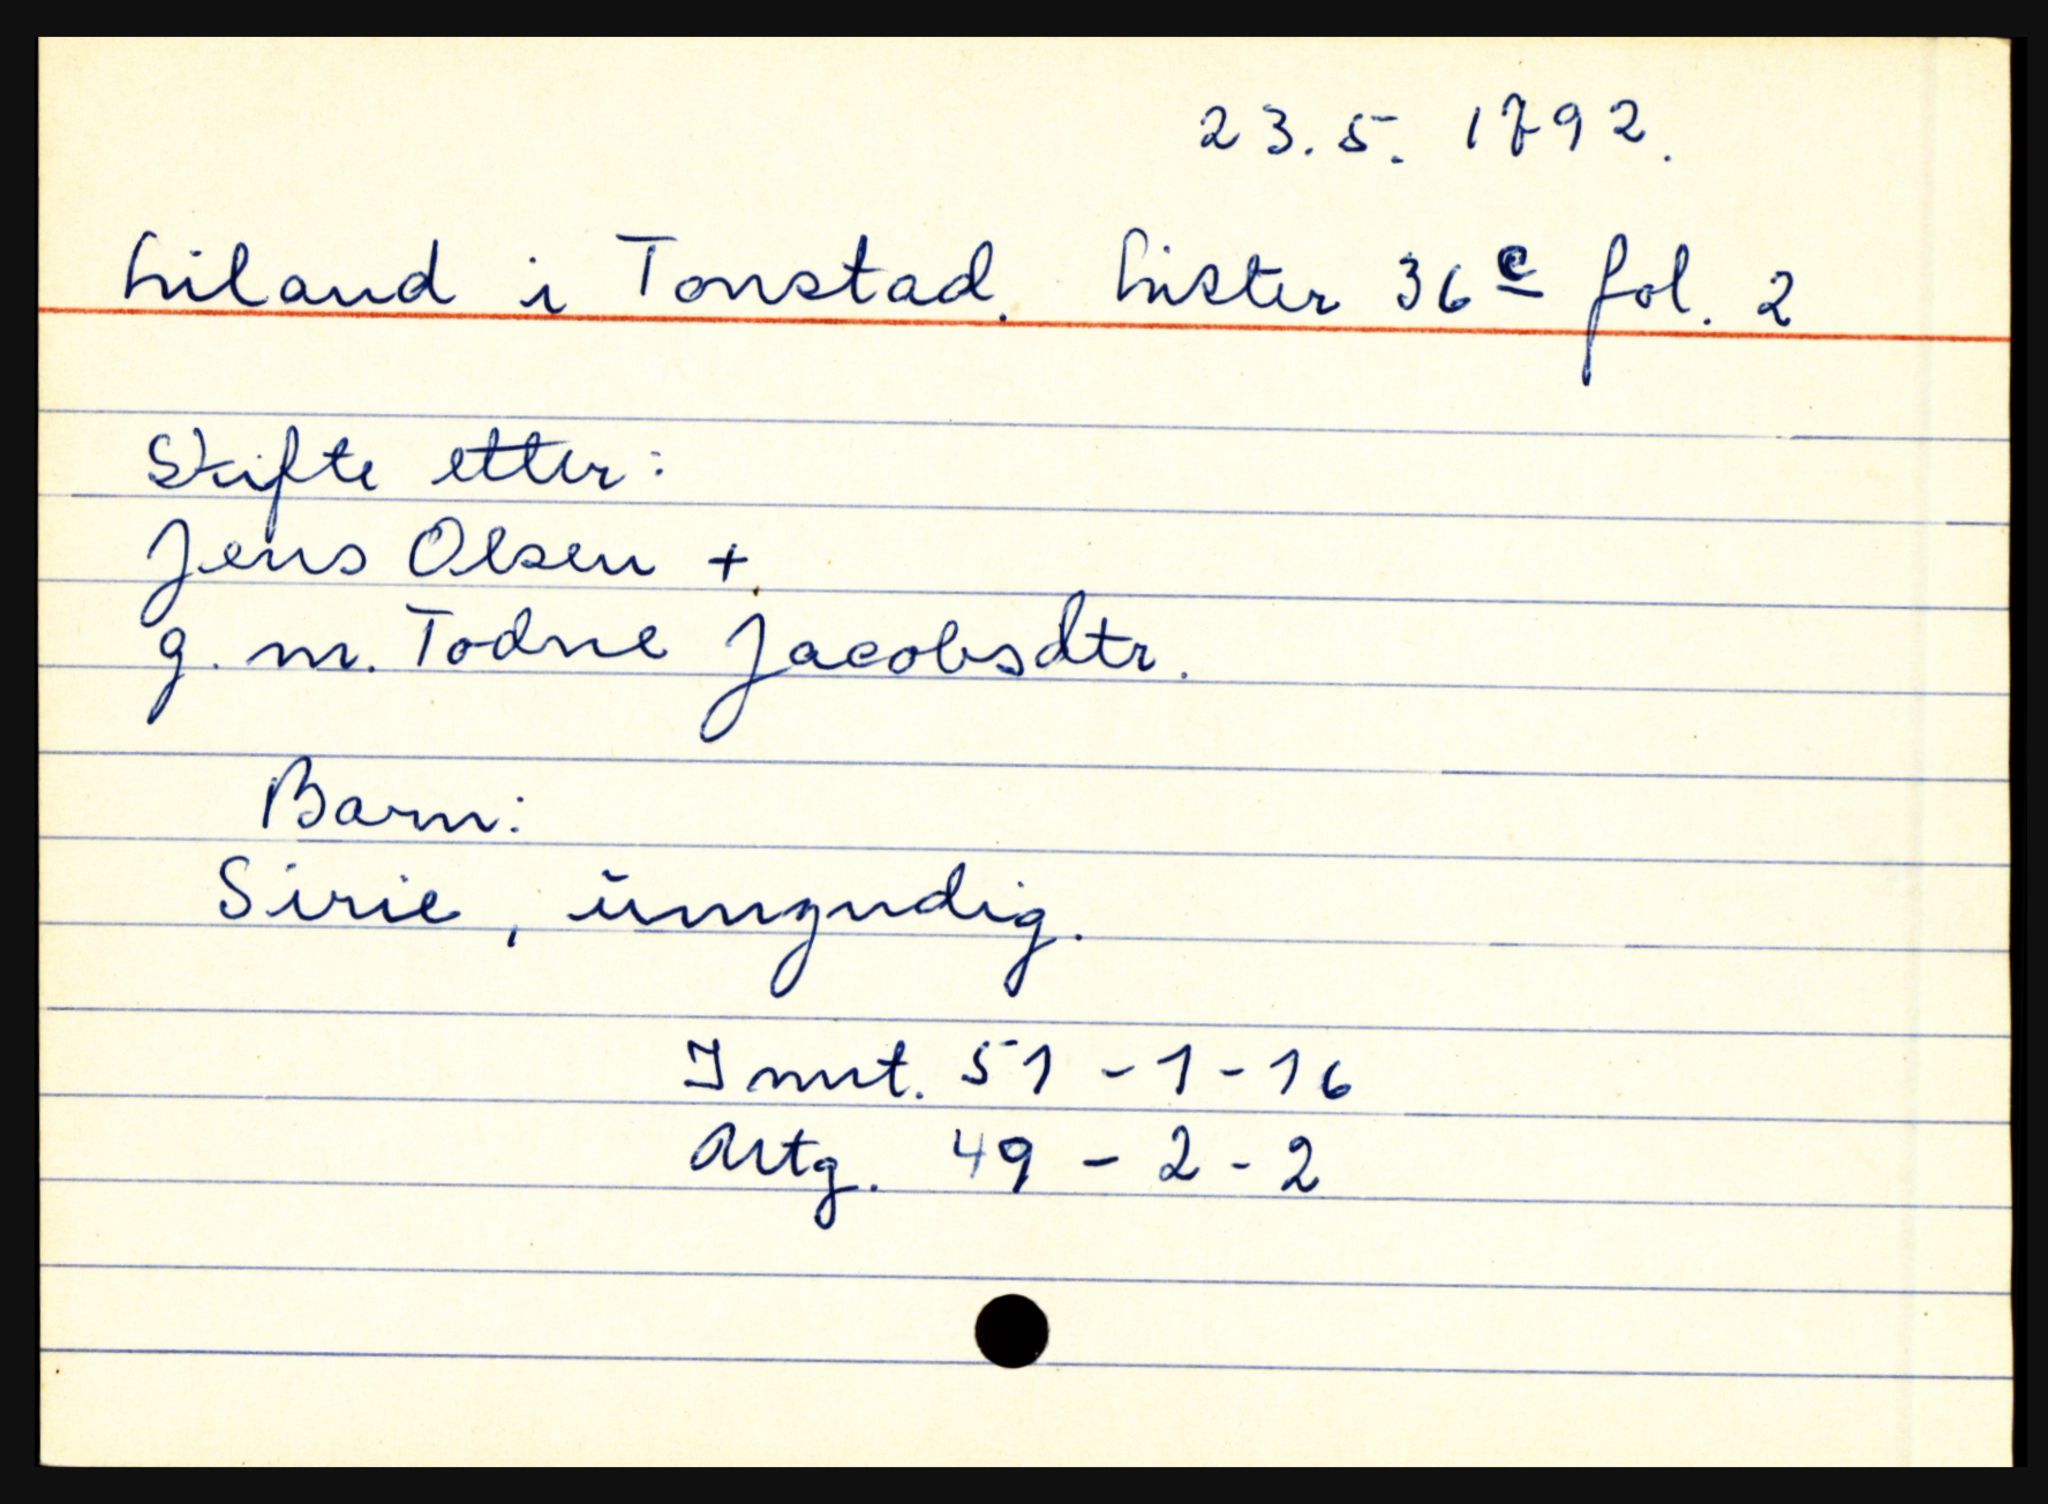 23.5. 1792.
Liland i Tonstad. Lister 36c fol. 2
Skifte etter:
Jens Olsen +
g. m. Todne Jacobsdtr.
Barn:
Sirie, umyndig.
Innt. 51-1-16
Utg. 49-2-2